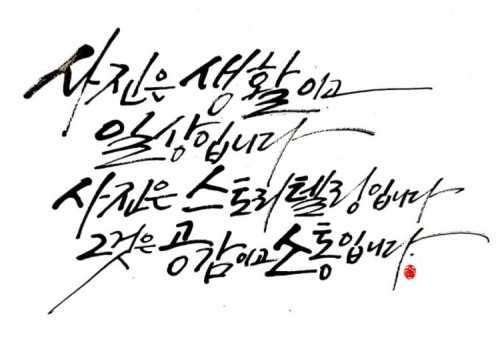 사진은 생활이고
일상입니다
사진은 스토리텔링입니다
그것은 공감이고 소통입니다.